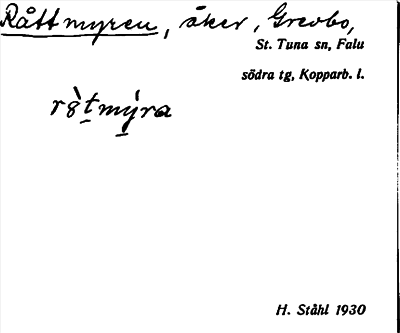 Råttmyren, åker, Grevbo,
St. Tuna sn, Falu
södra tg, Kopparb. l.
rò̱tmý̱ra
H. Ståhl 1930